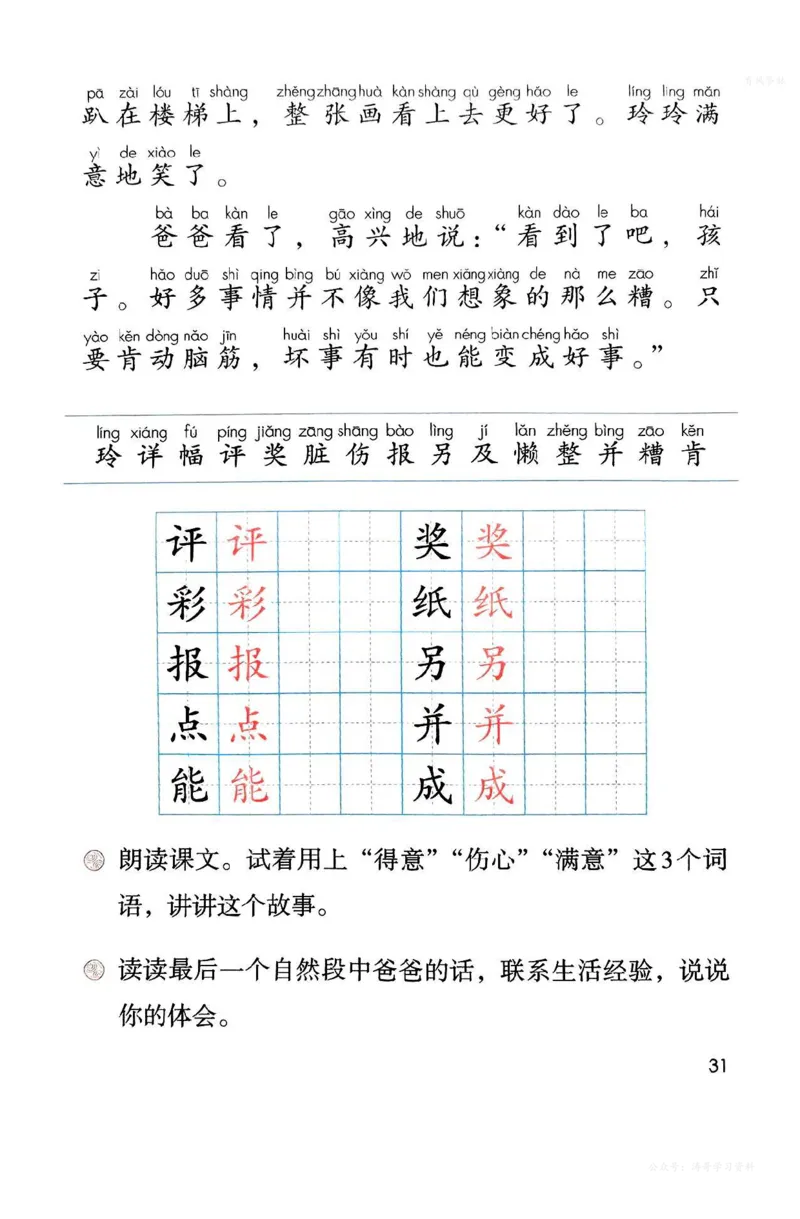 pā zài lóu tī shàng zhěng zhāng huà kàn shàng qù gèng hǎo le líng ling mǎn
趴在楼梯上，整张画看上去更好了。玲玲满
yì de xiào le
意地笑了。
bà ba kàn le gāo xìng de shuō kàn dào le ba hái
爸爸看了，高兴地说：“看到了吧，孩
zi hǎo duō shì qing bìng bú xiàng wǒ men xiǎng xiàng de nà me zāo zhǐ
子。好多事情并不像我们想象的那么糟。只
yào kěn dòng nǎo jīn huài shì yǒu shí yě néng biàn chéng hǎo shì
要肯动脑筋，坏事有时也能变成好事。”
líng xiáng fú píng jiǎng zāng shāng bào lìng jí lǎn zhěng bìng zāo kěn
玲详幅评奖脏伤报另及懒整并糟肯
评 评 奖 奖
彩 彩 纸 纸
报 报 另 另
点 点 并 并
能 能 成 成
朗读课文。试着用上“得意”“伤心”“满意”这3个词
语，讲讲这个故事。
读读最后一个自然段中爸爸的话，联系生活经验，说说
你的体会。
31